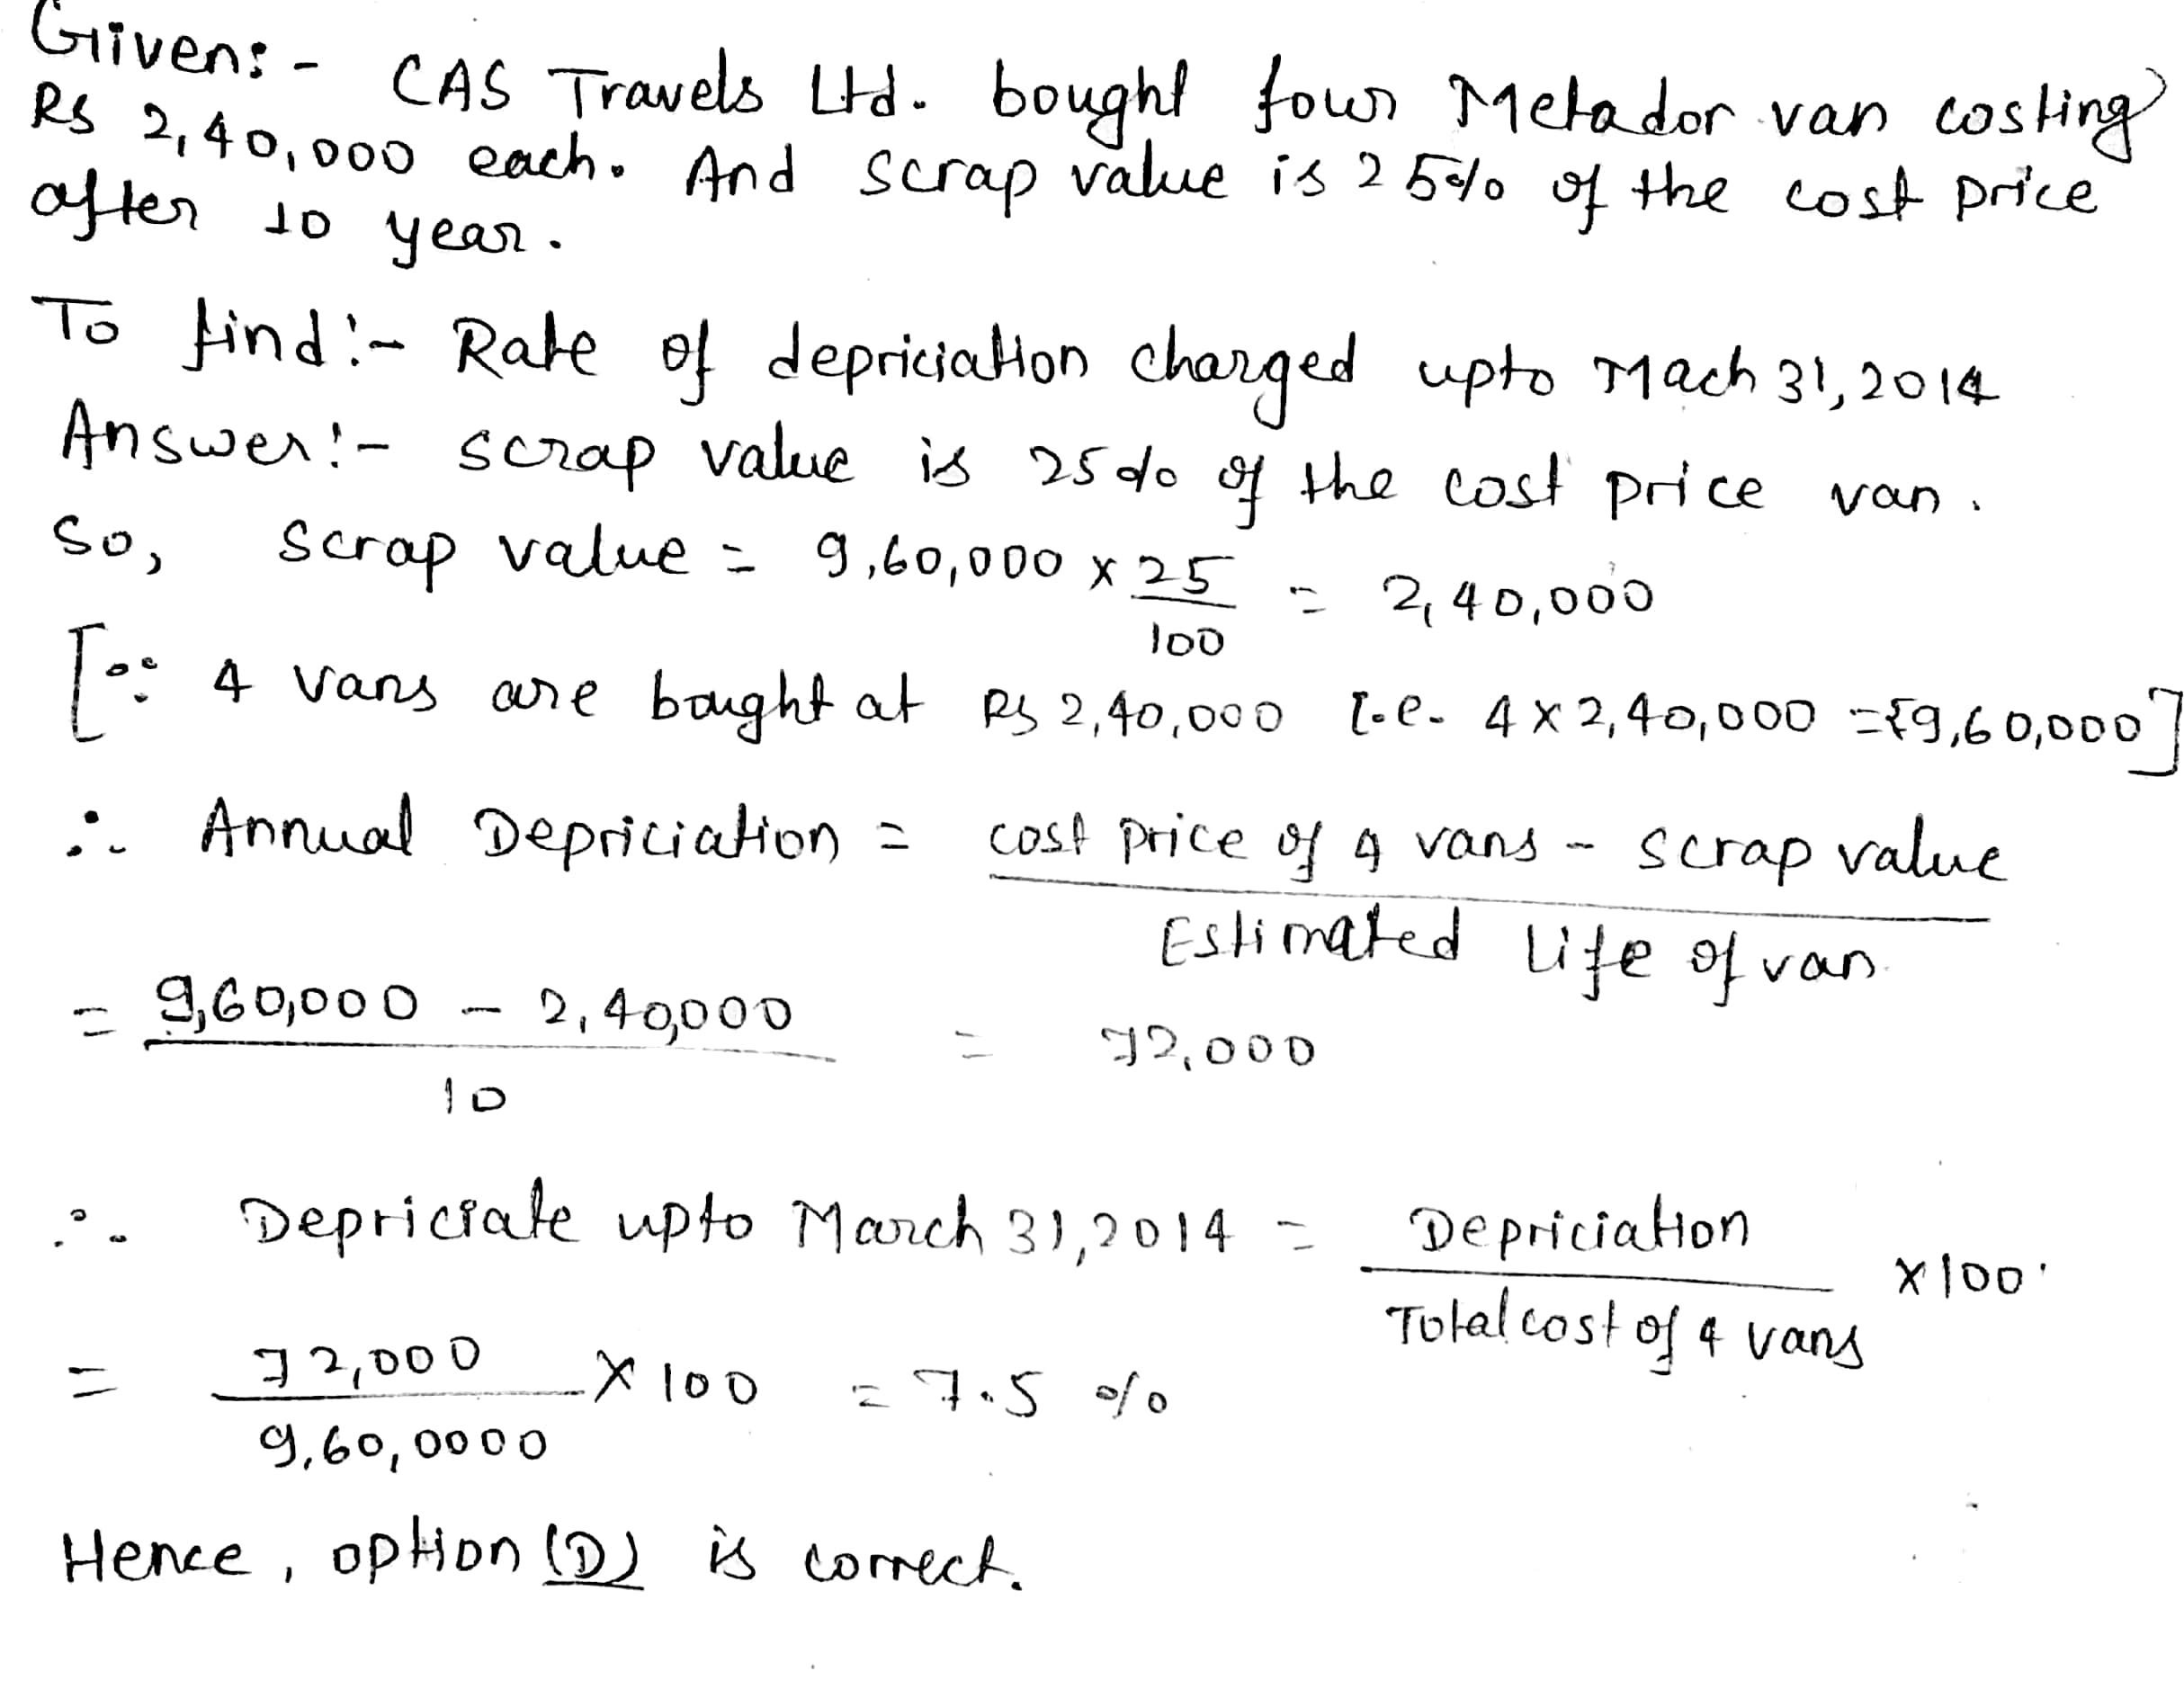 Given:- CAS Travels Ltd. bought four Metador van costing
Rs 2,40,000 each. And scrap value is 25% of the cost price
after 10 year.
To find:- Rate of depriciation charged upto Mach 31, 2014
Answer:- scrap value is 25% of the cost price van.
So, scrap value = 9,60,000 x 25/100 = 2,40,000
[∵ 4 vans are bought at Rs 2,40,000 i.e. 4 x 2,40,000 = ₹9,60,000]
∴ Annual Depriciation = cost price of 4 vans - scrap value / Estimated Life of van
= 9,60,000 - 2,40,000 / 10 = 72,000
∴ Depriciate upto March 31, 2014 = Depriciation / Total cost of 4 vans x 100.
= 72,000 / 9,60,0000 x 100 = 7.5 %
Hence, option (D) is correct.